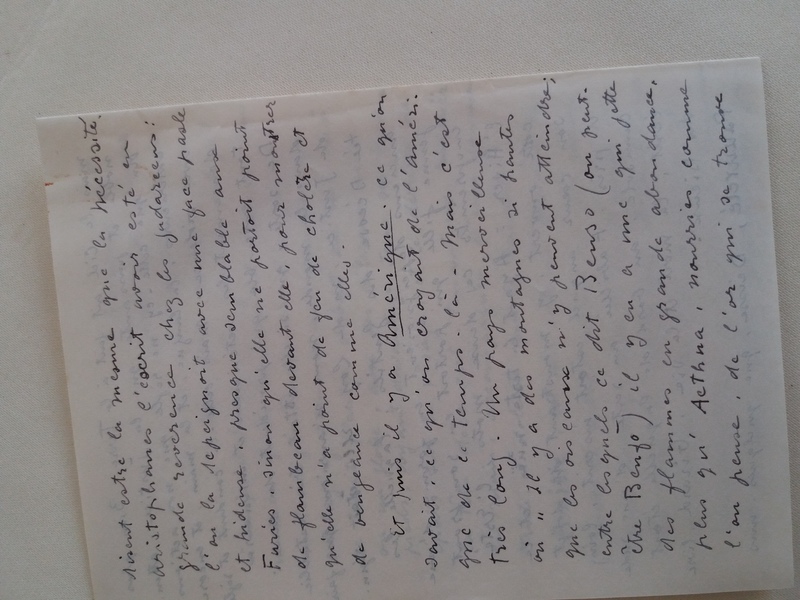 disent estre la mesme que la Nécessité.
Aristophanes l'escrit avoir esté en
grande reverence chez les
l'on la depeignoit avec une face pasle
et hideuse, presque semblable aux
Furies, sinon qu'elle ne portoit point
de flambeau devant elle, pour monstrer
qu'elle n'a point de feu de cholère et
de vengeance comme elles.
Et puis il y a Amérique. Ce qu'on
savait, ce qu'on croyait de l'Améri-
que de ce temps-là - Mais c'est
très long. Un pays merveilleux
où "il y a des montagnes si hautes
que les oiseaux n'y peuvent atteindre;
entre lesquels ce dit Benso (ou peut-
être Benzo) il y en a une qui jette
des flammes en grande abondance,
plus qu'Aethna, nourries comme
l'on pense, de l'or qui se trouve